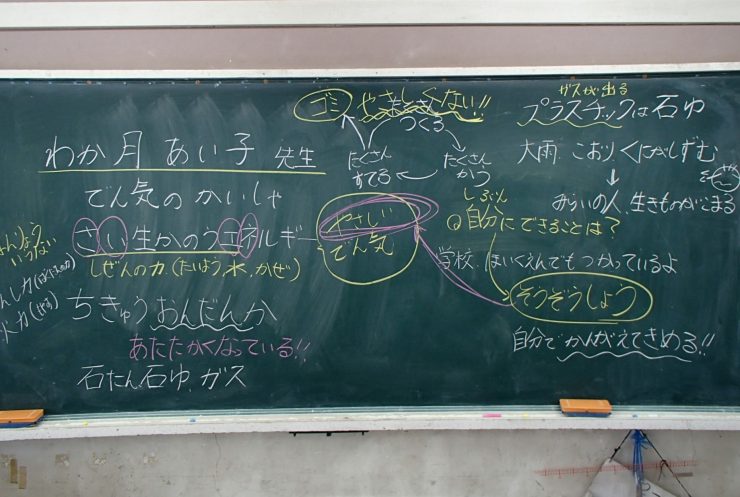 わか月 あい子 先生
でん気のかいしゃ
さいせい生かのうエネルギー
しぜんの力(たいよう,水,かぜ)
ちきゅうおんだんか
あたたかくなっている!!
石たん,石ゆ,ガス
ゴミ
やさしくない!!
つくる
たくさん
すてる
たくさん
かう
やさしい
でん気
じぶん
自分にできることは?
学校、ほいくえんでもつかっているよ
そうぞうしよう
自分でかんがえてきめる!!
ガスが出る
プラスチックは石ゆ
大雨、こおり、くにがしずむ
みらいの人、生きものがこまる